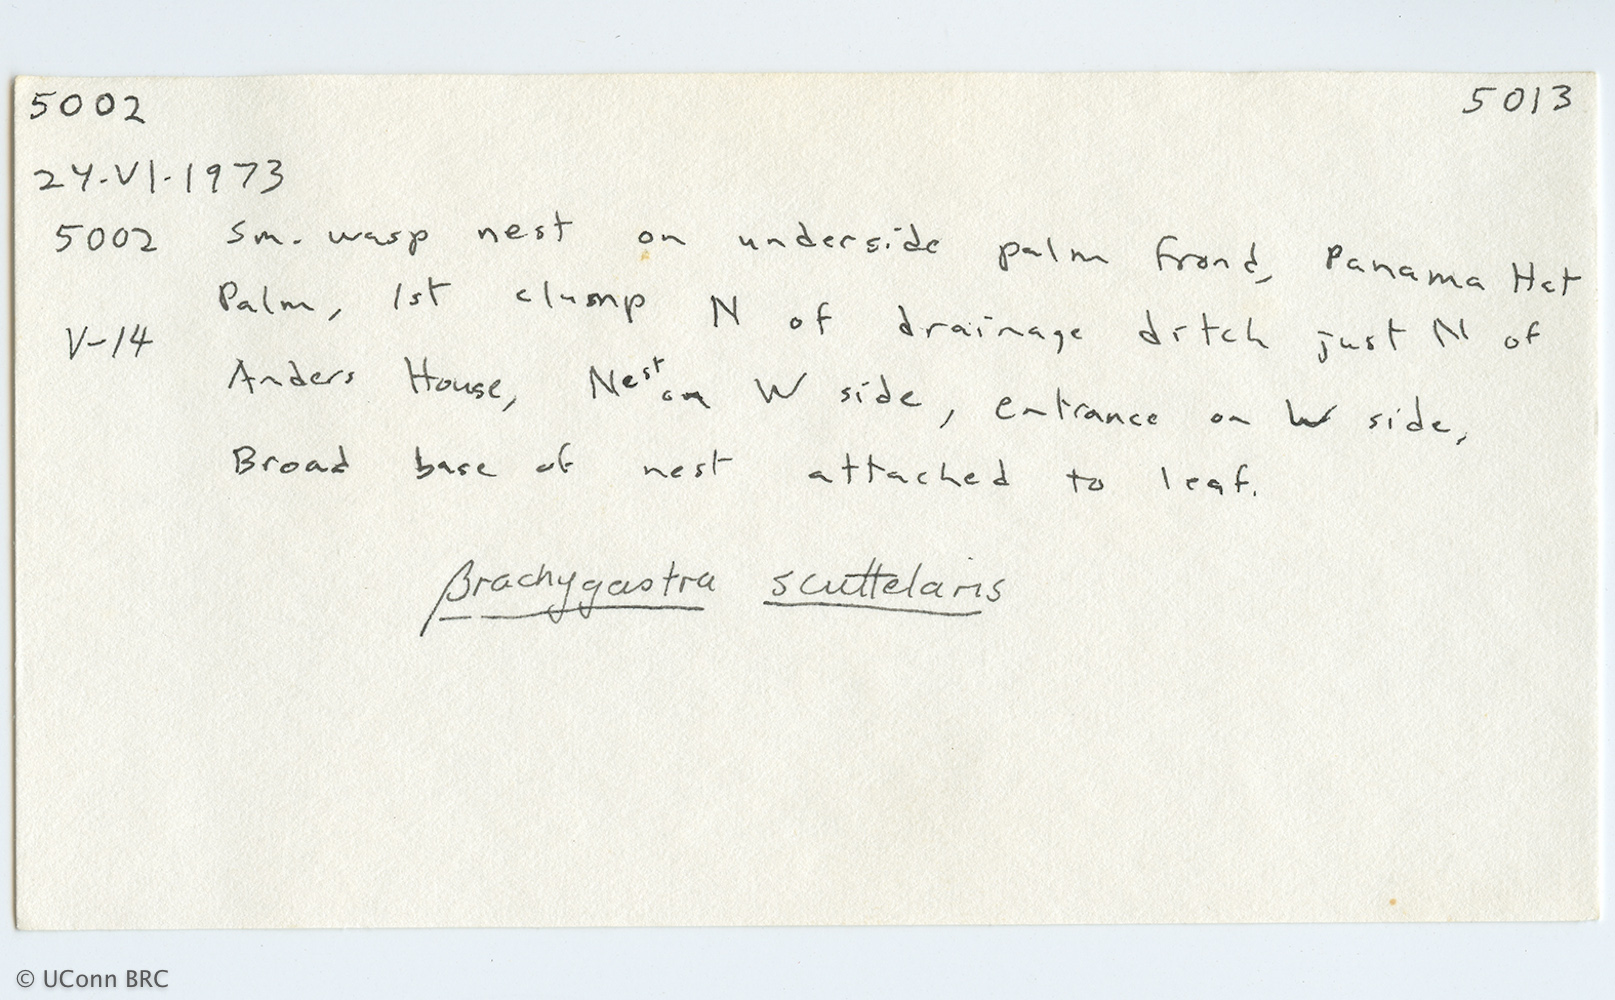 5002 5013
24-VI-1973
5002 Sm. wasp nest on underside palm frond, Panama Hat
Palm, 1st clump N of drainage ditch just N of
V-14
Anders House, Nest on W side, entrance on W side,
Broad base of nest attached to leaf.
Brachygastra scuttelaris
© UConn BRC